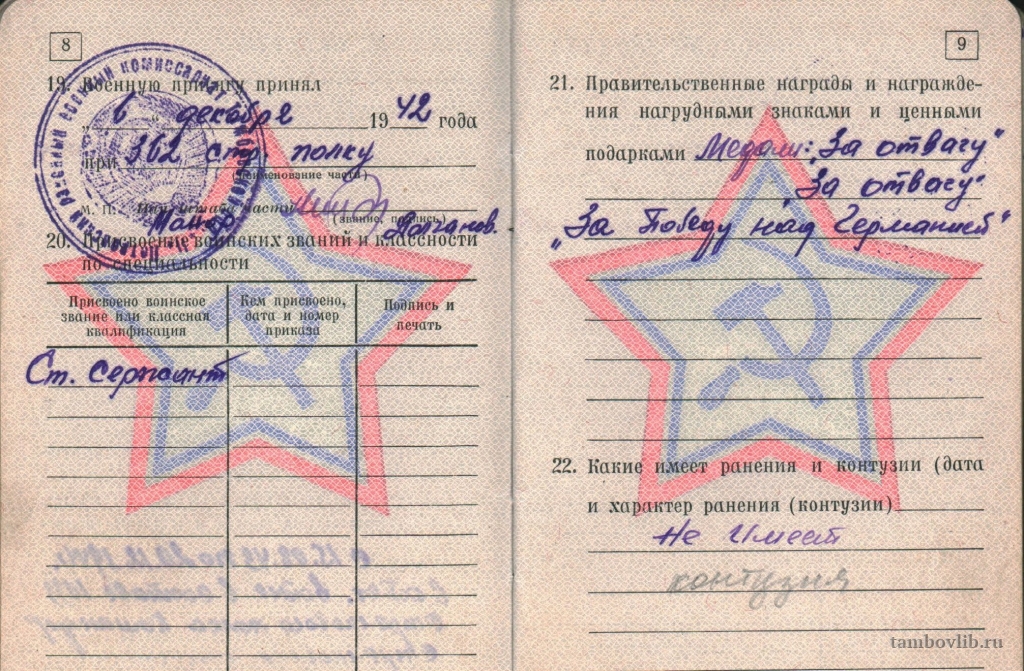 8
19. Военную присягу принял
„ 6 декабря 1942 года
при 362 стр. полку
(наименование части)
М. П.
Майор Долганов.
(звание, подпись)
20. Присвоение воинских званий и классности
по специальности
Присвоено воинское
звание или классная
квалификация
Кем присвоено,
дата и номер
приказа
Подпись и
печать
Ст. Сержант
9
21. Правительственные награды и награжде-
ния нагрудными знаками и ценными
подарками Медали: „За отвагу"
„За отвагу"
„За Победу над Германией"
22. Какие имеет ранения и контузии (дата
и характер ранения (контузии)
Не имеет
контузия
tambovlib.ru